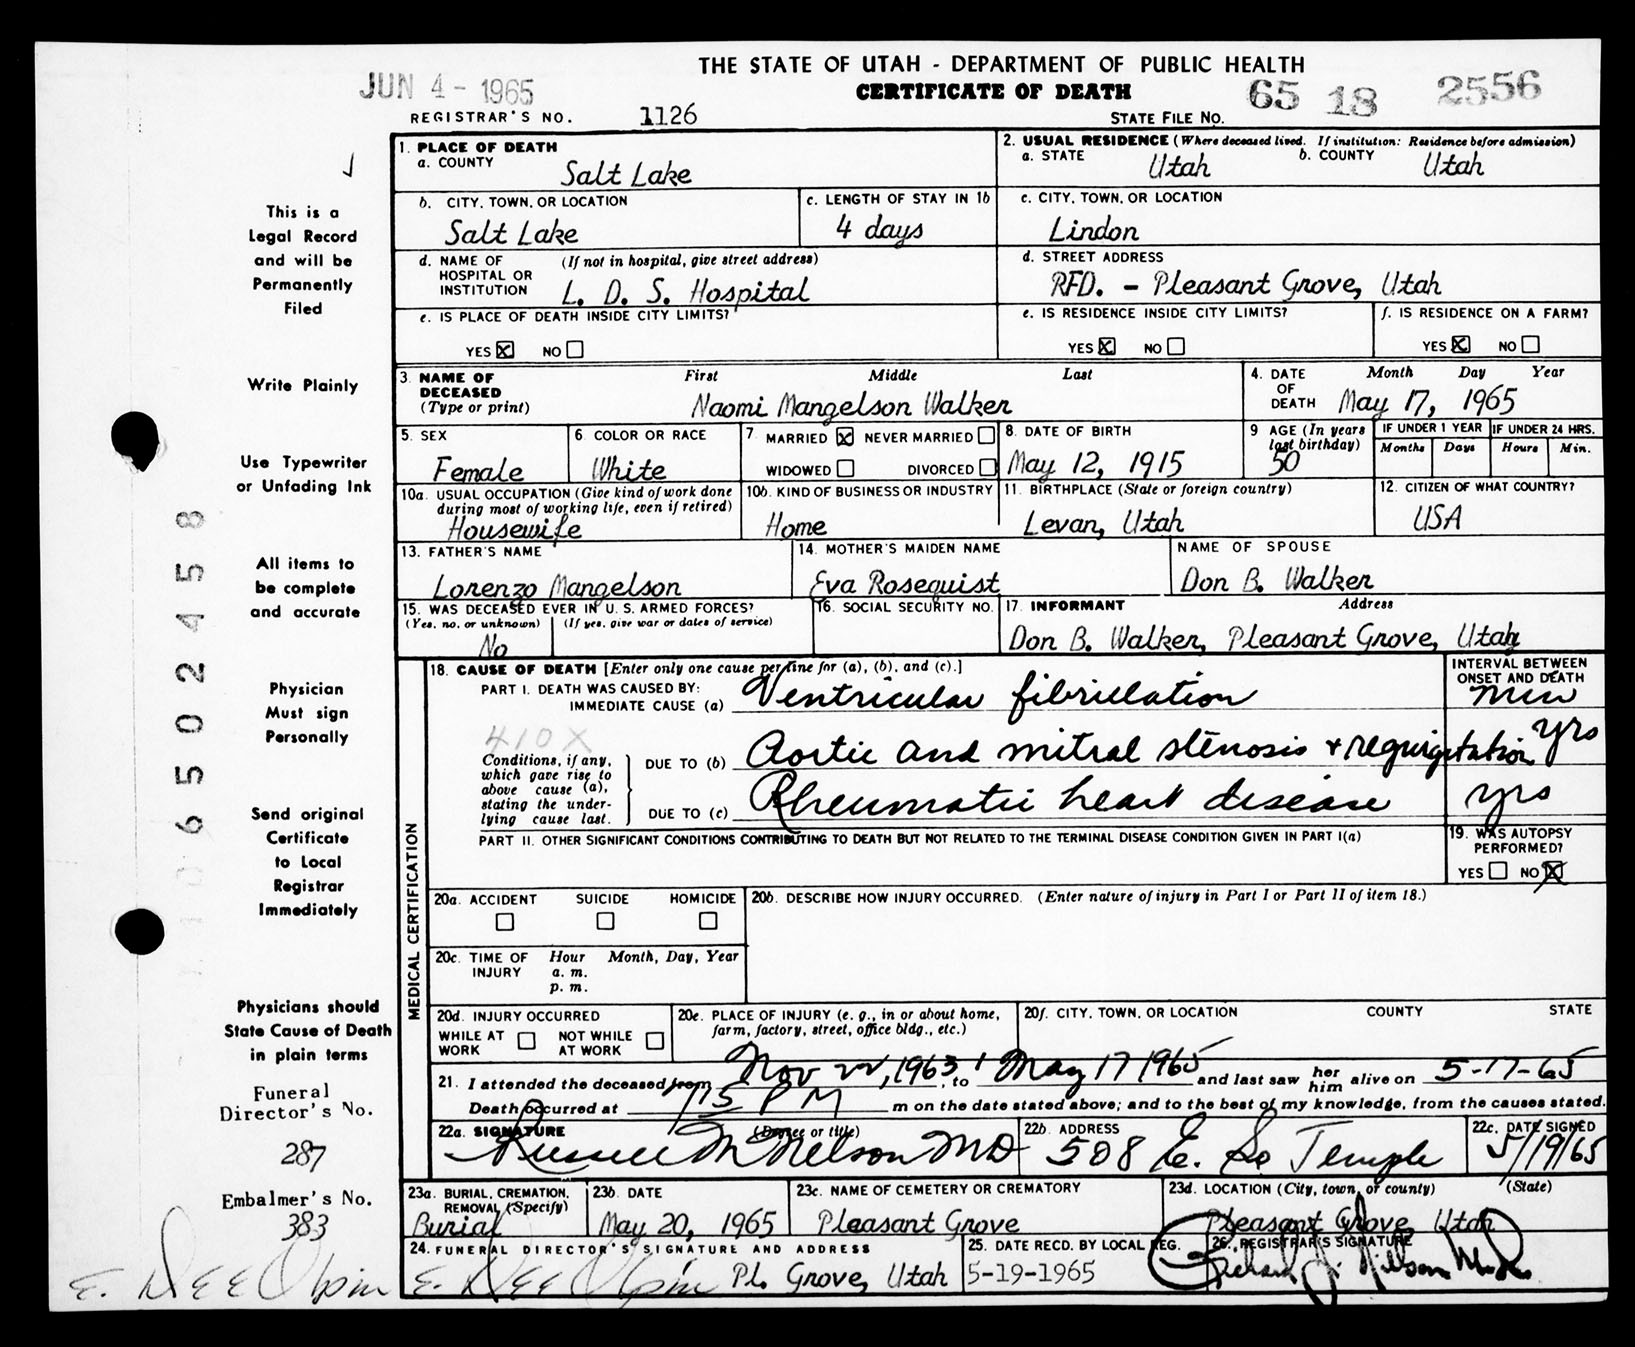 THE STATE OF UTAH - DEPARTMENT OF PUBLIC HEALTH
JUN 4 - 1965
CERTIFICATE OF DEATH
65 18 2556
REGISTRAR'S NO. 1126
STATE FILE NO.
1. PLACE OF DEATH
a. COUNTY Salt Lake
2. USUAL RESIDENCE (Where deceased lived. If institution: Residence before admission)
a. STATE Utah b. COUNTY Utah
b. CITY, TOWN, OR LOCATION Salt Lake
c. LENGTH OF STAY IN 1b 4 days
c. CITY, TOWN, OR LOCATION Lindon
d. NAME OF HOSPITAL OR INSTITUTION (If not in hospital, give street address) L. D. S. Hospital
d. STREET ADDRESS RFD. - Pleasant Grove, Utah
e. IS PLACE OF DEATH INSIDE CITY LIMITS? YES X NO
e. IS RESIDENCE INSIDE CITY LIMITS? YES X NO
f. IS RESIDENCE ON A FARM? YES X NO
3. NAME OF DECEASED (Type or print) First Middle Last
Naomi Mangelson Walker
4. DATE OF DEATH Month Day Year
May 17, 1965
5. SEX Female
6. COLOR OR RACE White
7. MARRIED X NEVER MARRIED
WIDOWED DIVORCED
8. DATE OF BIRTH May 12, 1915
9 AGE (In years last birthday) 50
IF UNDER 1 YEAR Months Days
IF UNDER 24 HRS. Hours Min.
10a. USUAL OCCUPATION (Give kind of work done during most of working life, even if retired) Housewife
10b. KIND OF BUSINESS OR INDUSTRY Home
11. BIRTHPLACE (State or foreign country) Levan, Utah
12. CITIZEN OF WHAT COUNTRY? USA
13. FATHER'S NAME Lorenzo Mangelson
14. MOTHER'S MAIDEN NAME Eva Rosequist
NAME OF SPOUSE Don B. Walker
15. WAS DECEASED EVER IN U. S. ARMED FORCES?
(Yes, no, or unknown) (If yes, give war or dates of service)
No
16. SOCIAL SECURITY NO.
17. INFORMANT Address
Don B. Walker, Pleasant Grove, Utah
MEDICAL CERTIFICATION
18. CAUSE OF DEATH [Enter only one cause per line for (a), (b), and (c).]
INTERVAL BETWEEN ONSET AND DEATH
PART I. DEATH WAS CAUSED BY:
IMMEDIATE CAUSE (a) Ventricular fibrillation min
410X
Conditions, if any, which gave rise to above cause (a), stating the underlying cause last.
DUE TO (b) Aortic and mitral stenosis + regurgitation yrs
DUE TO (c) Rheumatic heart disease yrs
PART II. OTHER SIGNIFICANT CONDITIONS CONTRIBUTING TO DEATH BUT NOT RELATED TO THE TERMINAL DISEASE CONDITION GIVEN IN PART I(a)
19. WAS AUTOPSY PERFORMED?
YES NO X
20a. ACCIDENT SUICIDE HOMICIDE
20b. DESCRIBE HOW INJURY OCCURRED. (Enter nature of injury in Part I or Part II of item 18.)
20c. TIME OF INJURY Hour Month, Day, Year
a. m.
p. m.
20d. INJURY OCCURRED
WHILE AT WORK NOT WHILE AT WORK
20e. PLACE OF INJURY (e. g., in or about home, farm, factory, street, office bldg., etc.)
20f. CITY, TOWN, OR LOCATION COUNTY STATE
21. I attended the deceased from Nov 22, 1963, to May 17 1965 and last saw her him alive on 5-17-65
Death occurred at 715 P M m on the date stated above; and to the best of my knowledge, from the causes stated.
22a. SIGNATURE (Degree or title) Russell M Nelson MD
22b. ADDRESS 508 E. So Temple
22c. DATE SIGNED 5/19/65
23a. BURIAL, CREMATION, REMOVAL (Specify) Burial
23b. DATE May 20, 1965
23c. NAME OF CEMETERY OR CREMATORY Pleasant Grove
23d. LOCATION (City, town, or county) (State)
Pleasant Grove, Utah
24. FUNERAL DIRECTOR'S SIGNATURE AND ADDRESS
E. Dee Olpin Pl. Grove, Utah
25. DATE RECD. BY LOCAL REG. 5-19-1965
26. REGISTRAR'S SIGNATURE
This is a
Legal Record
and will be
Permanently
Filed
Write Plainly
Use Typewriter
or Unfading Ink
All items to
be complete
and accurate
Physician
Must sign
Personally
Send original
Certificate
to Local
Registrar
Immediately
Physicians should
State Cause of Death
in plain terms
Funeral
Director's No.
287
Embalmer's No.
383
E. Dee Olpin